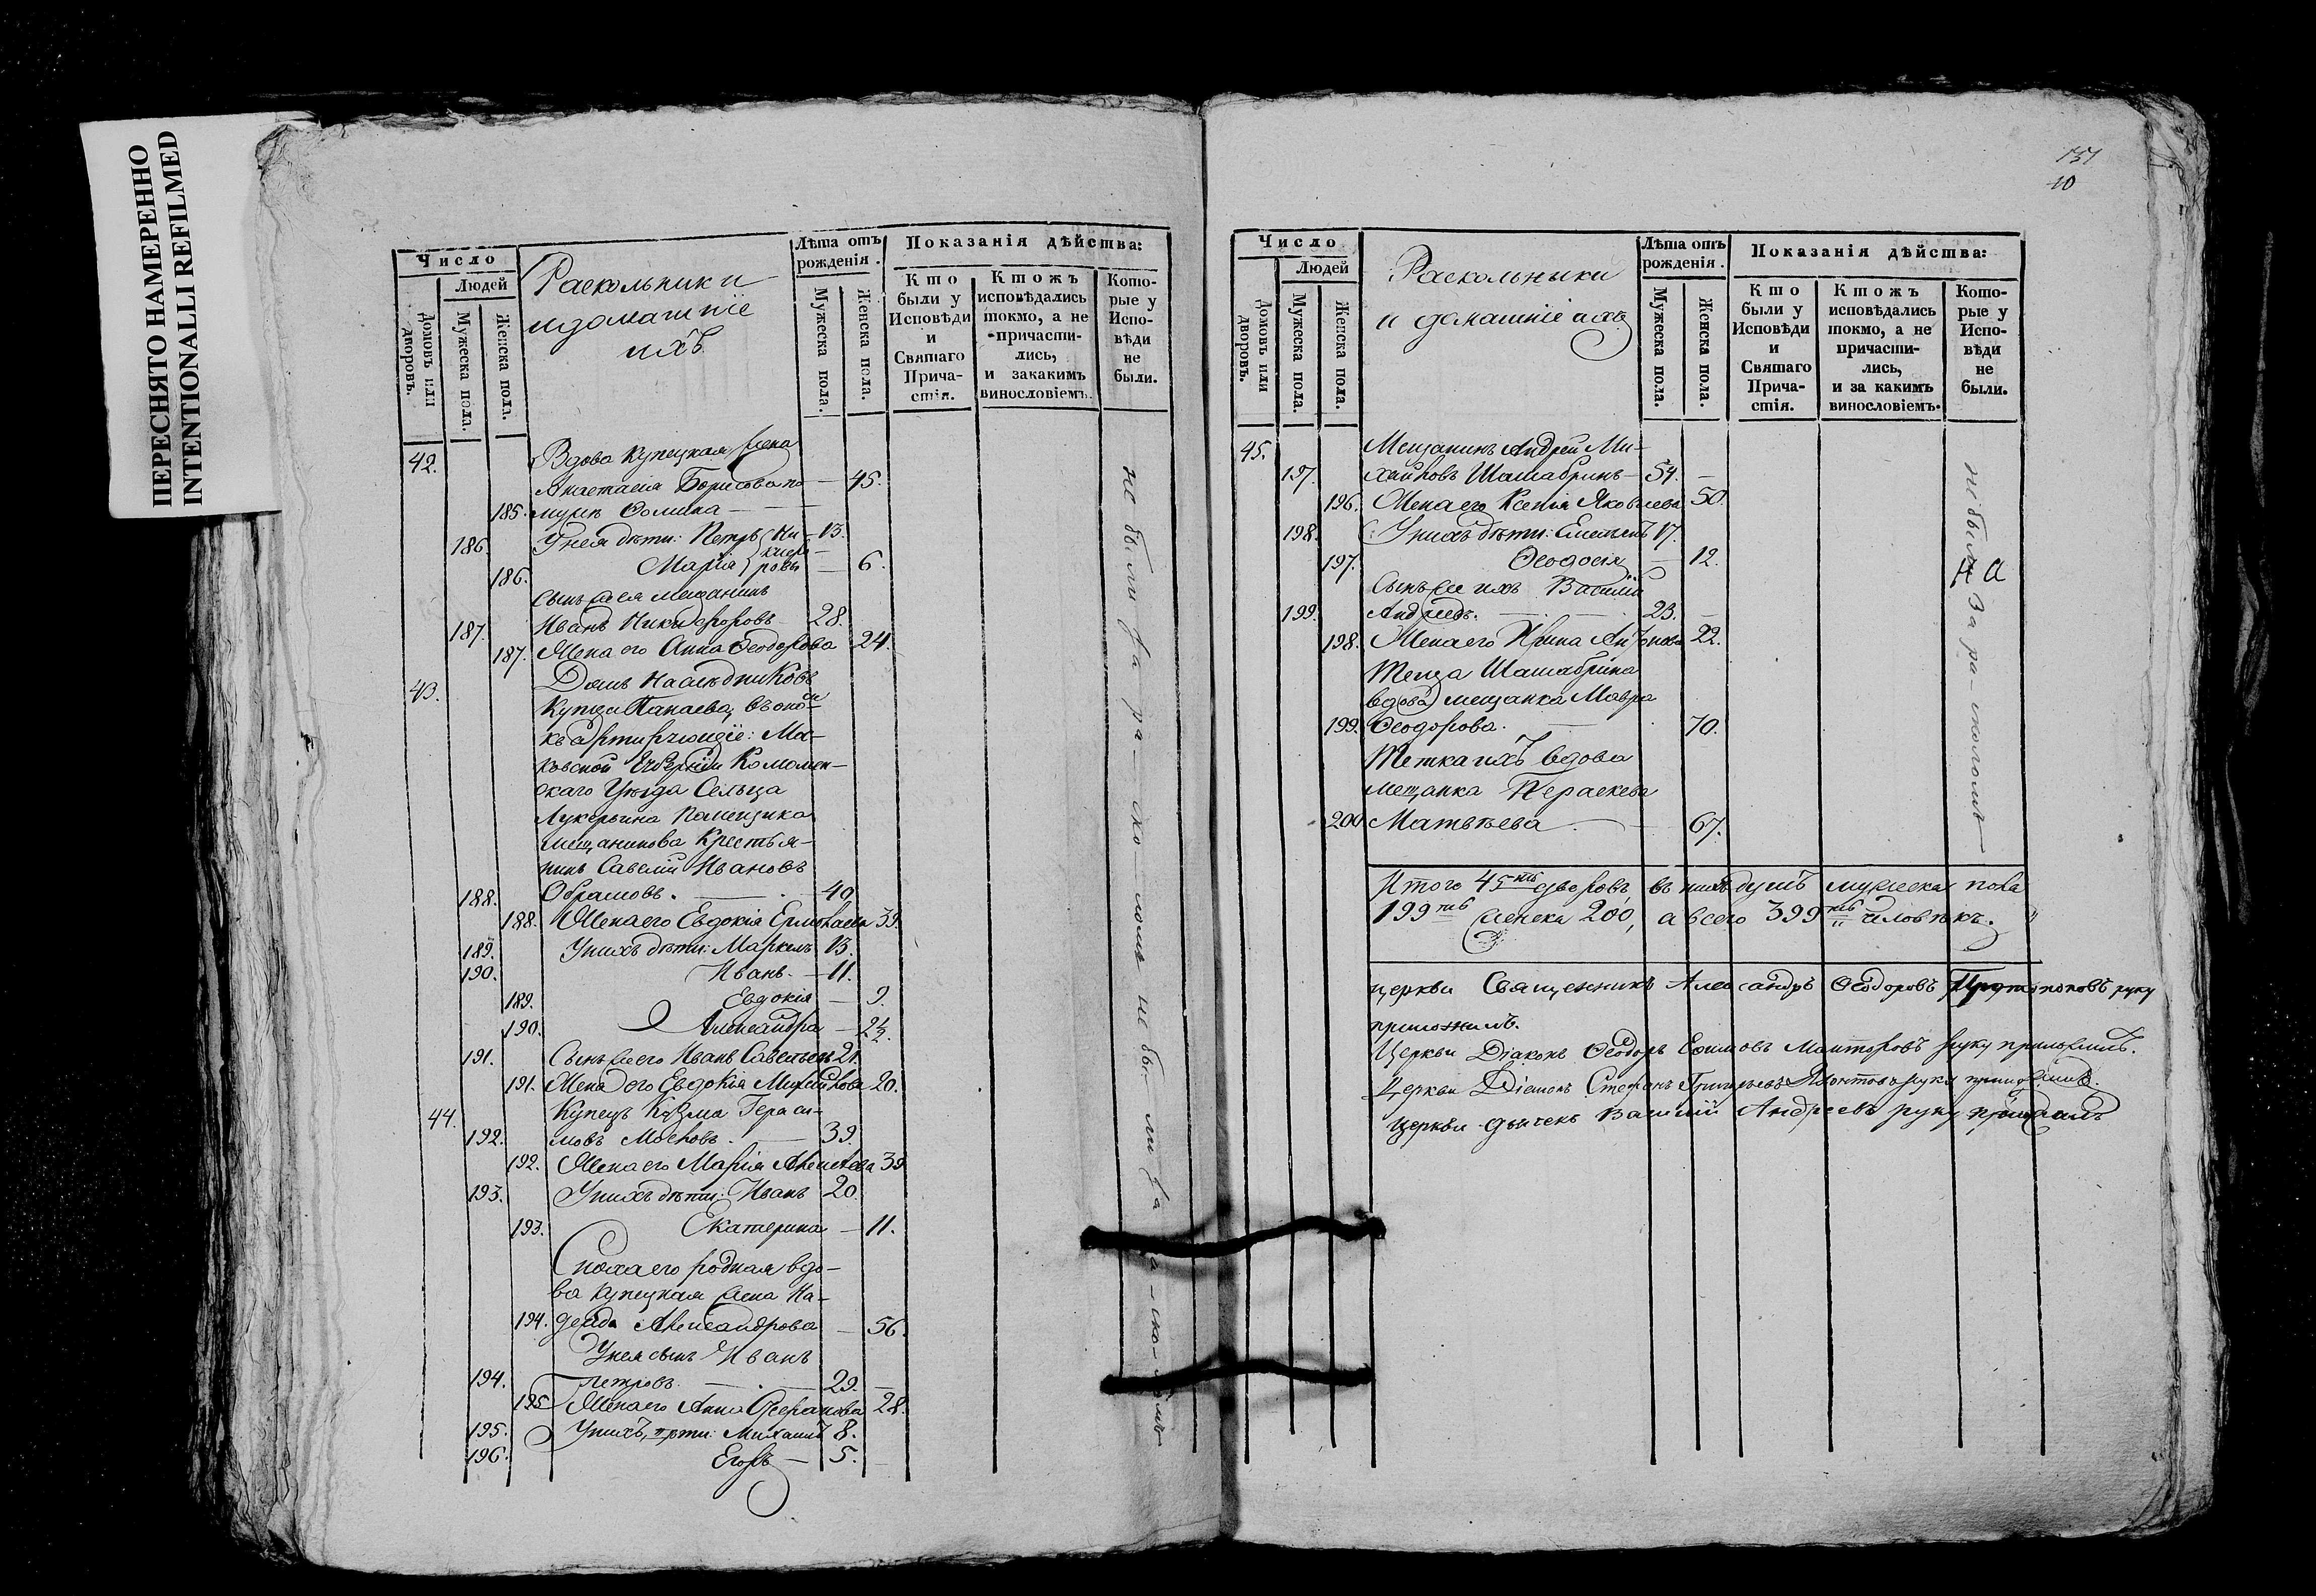 ПЕРЕСНЯТО НАМЕРЕННО
INTENTIONALLI REFILMED
Число
Людей
Домовъ или дворовъ.
Мужеска пола.
Женска пола.
Раскольники
и домашніе
ихъ
Лѣта отъ рожденія.
Мужеска пола.
Женска пола.
Показанія дѣйства:
Кто были у Исповѣди и Святаго Прича-стія.
Ктожъ исповѣдались токмо, а не причасти-лись, и закакимъ винословіемъ.
Кото-рые у Испо-вѣди не были.
42. Вдова Купецкая жена
Анастасія Борисова по — 45.
185. мужѣ Ѳомина — — —
186. У нея дѣти: Петръ Ни- 13.
186. Марія ровы — 6.
Сынъ же ея мещанинъ
187. Иванъ Никифоровъ 28.
187. Жена его Анна Ѳеодорова 24.
43. Домъ наслѣдниковъ
Купца Панаева, въ ономъ
квартирующіе: Мо-
ковской Губерніи Коломен-
скаго Уѣзда Сельца
Лукерьина Помещика
мещанинова Крестья-
нинъ Савелій Ивановъ
188. Обрамовъ. — 40.
188. Жена его Евдокія Ермолаева 39.
189. У нихъ дѣти: Маркелъ 13.
190. Иванъ. — 11.
189. Евдокія — 9.
190. Александра — 2½.
191. Сынъ же его Иванъ Савельевъ 21.
191. Жена его Евдокія Михайлова 20.
44. Купецъ Козма Гераси-
192. мовъ — 39.
192. Жена его Марія Алексѣева 39
193. У нихъ дѣти: Иванъ 20.
193. Екатерина — 11.
Сноха его родная вдо-
ва купецкая жена На-
194. дежда Александрова — 56.
У нея сынъ Иванъ
194. Петровъ. — 29.
195. Жена его Анна Стефанова 28.
195. У нихъ дѣти: Михаилъ 8.
196. Егоръ — 5.
не были за ра-ско-ломъ не бы-ли за ра-ско-ломъ
131
10
Число
Людей
Домовъ или дворовъ.
Мужеска пола.
Женска пола.
Раскольники
и домашніе ихъ
Лѣта отъ рожденія.
Мужеска пола.
Женска пола.
Показанія дѣйства:
Кто были у Исповѣди и Святаго Прича-стія.
Ктожъ исповѣдались токмо, а не причасти-лись, и за какимъ винословіемъ.
Кото-рые у Испо-вѣди не были.
45. Мещанинъ Андрей Ми-
197. хайловъ Шашабринъ — 54. —
196. Жена его Ксенія Яковлева 50.
198. У нихъ дѣти: Емельянъ 17.
197. Ѳеодосія — 12.
Сынъ же ихъ Василій
199. Андреевъ. — 23. —
198. Жена его Ирина Антонова 22.
Теща Шашабрина
вдова мещанка Мавра
199. Ѳеодорова. — 70.
Тетка ихъ вдова
мещанка Параскева
200 Матвѣева — 67.
не были за ра-сколомъ
Итого 45-ть дворовъ, въ нихъ душъ мужеска пола
199-ть женска 200, а всего 399-ть человѣкъ.
церкви Священникъ Александръ Ѳеодоровъ Протопоповъ руку
приложилъ.
Церкви Діаконъ Ѳеодоръ Ефимовъ руку приложилъ.
Церкви Стефанъ Григорьевъ руку приложилъ.
Церкви дьячекъ Василій Андреевъ руку приложилъ